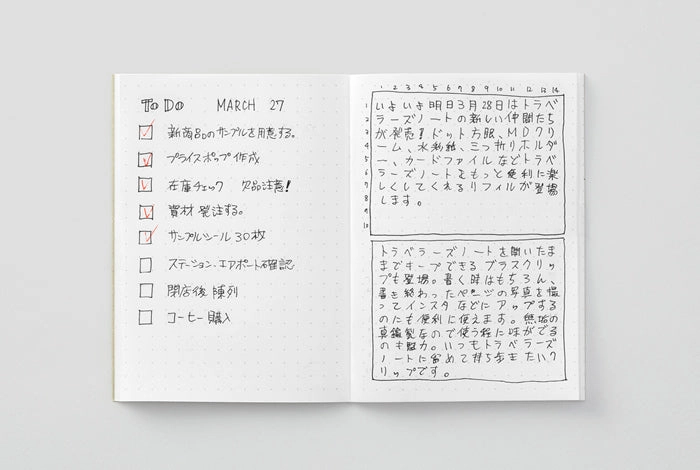 To Do MARCH 27
新商品のサンプルを用意する。
プライスポップ作成
在庫チェック 欠品注意!
資材発注する。
サンプルシール30枚
ステーション、エアポート確認
閉店後 陳列
コーヒー購入
1 2 3 4 5 6 7 8 9 10 11 12 13 14
1 いよいよ明日3月28日はトラベ
2 ラーズノートの新しい仲間たち
3 が発売!ドット方眼、MDクリ
4 ーム、水彩紙、三つ折りホルダ
5 ー、カードファイルなどトラベ
6 ラーズノートをもっと便利に楽
7 しくしてくれるリフィルが登場
8 します。
9
10
トラベラーズノートを開いたま
まキープできるブラスクリッ
プも登場。書く時はもちろん、
書き終わったページの写真を撮
ってインスタなどにアップする
のにも便利に使えます。無垢の
真鍮製なので使う程に味がでる
のも魅力。いつもトラベラーズ
ノートに留めて持ち歩きたいク
リップです。